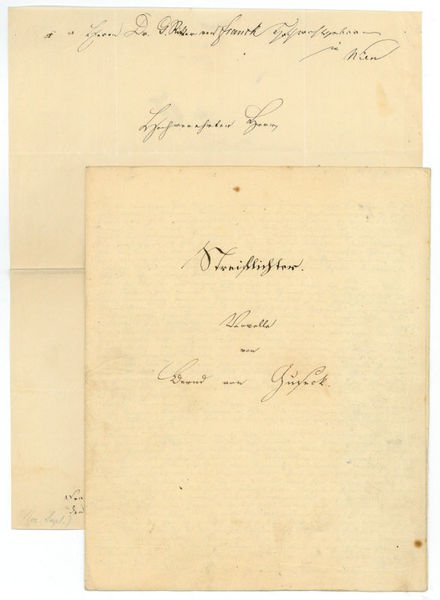 Herrn Dr. G. Ritter von Franck Hochwohlgeboren
in
Wien
Hochverehrter Herr,
Streiflichter.
Novelle
von
Bernd von Guseck.